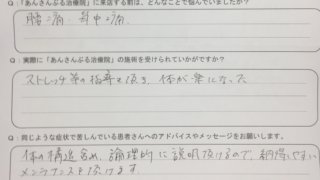 Q:「あんさんぶる治療院」に来店する前は、どんなことで悩んでいましたか?
腰痛・背中痛
Q: 実際に「あんさんぶる治療院」の施術を受けられていかがですか?
ストレッチ等の指導を頂き、体が楽になった
Q: 同じような症状で苦しんでいる患者さんへのアドバイスやメッセージをお願いします。
体の構造含め、論理的に説明頂けるので、納得しやすい
メンテナンスを頂けます。